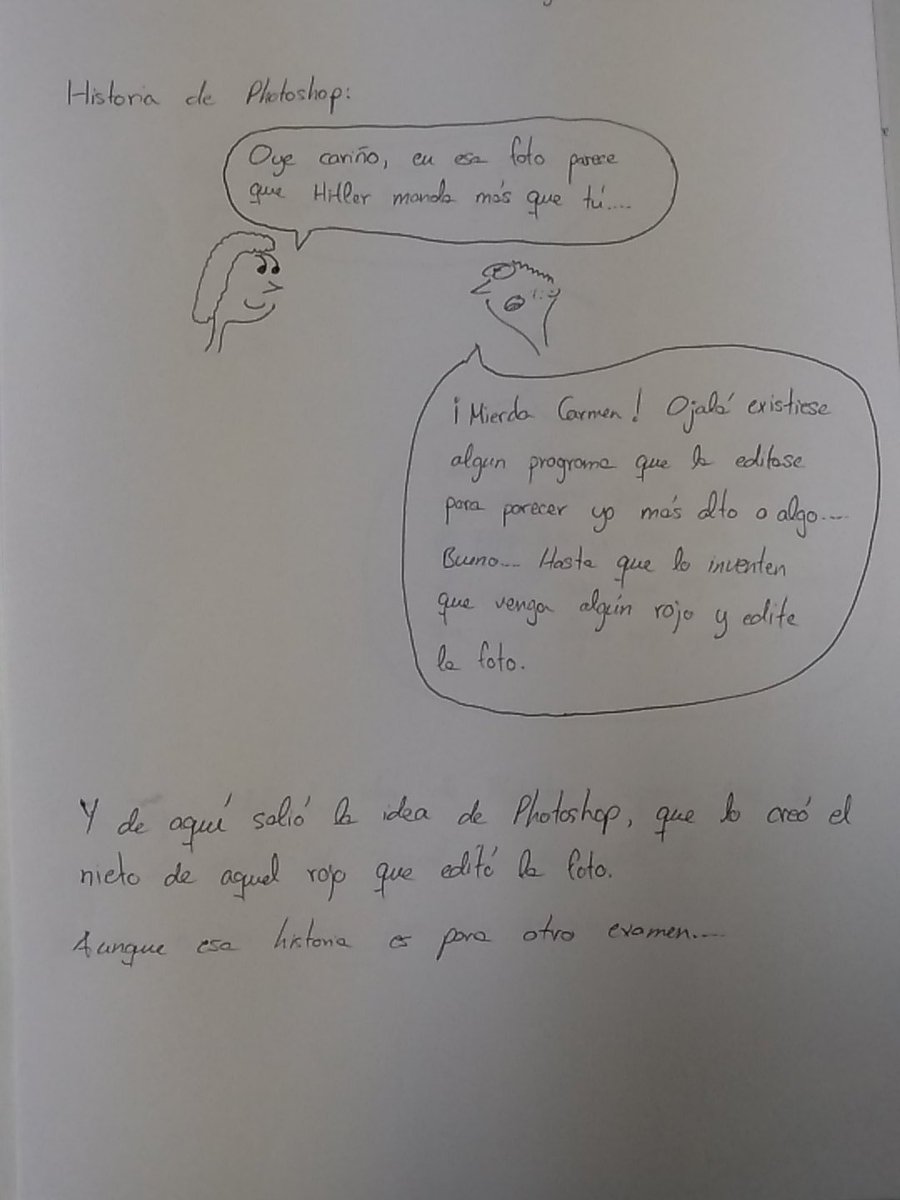 Historia de Photoshop:
Oye cariño, en esa foto parece
que Hitler manda más que tú....
¡Mierda Carmen! Ojalá existiese
algun programa que la editase
para parecer yo más alto o algo....
Bueno... Hasta que lo inventen
que venga algún rojo y edite
la foto.
Y de aquí salió la idea de Photoshop, que lo creó el
nieto de aquel rojo que editó la foto.
Aunque esa historia es para otro examen....